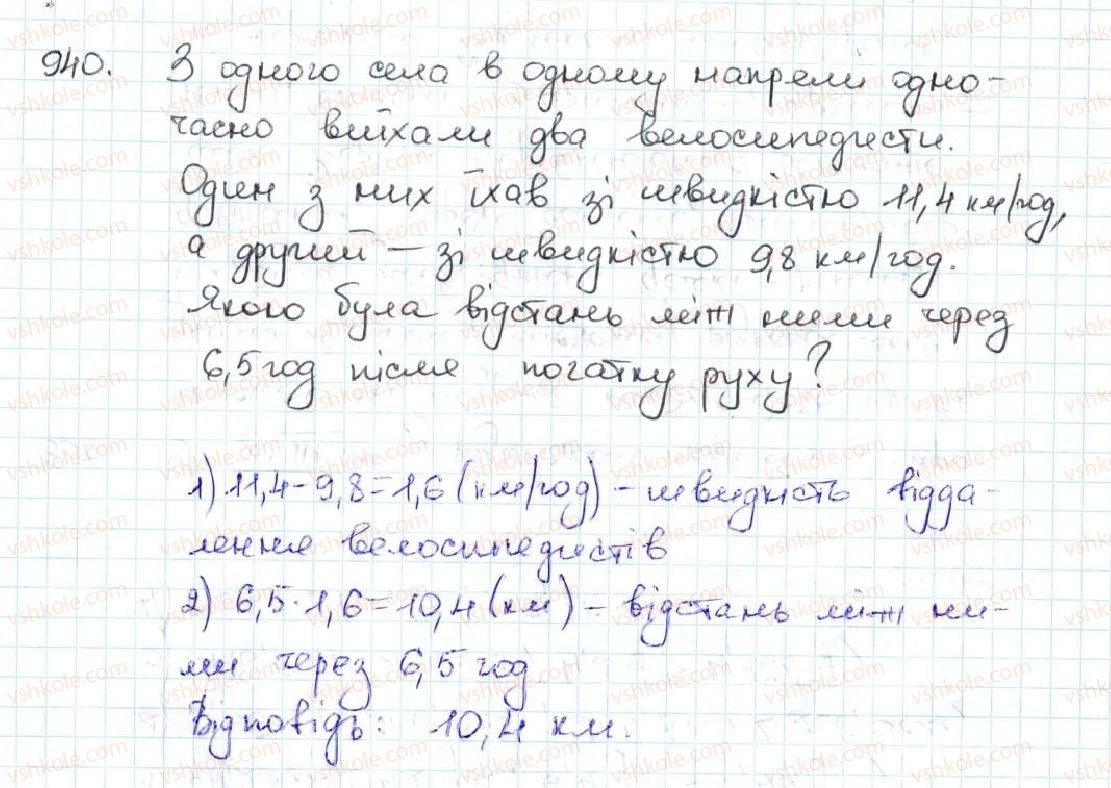 940. З одного села в одному напрямі одно-
часно виїхали два велосипедисти.
Один з них їхав зі швидкістю 11,4 км/год,
а другий – зі швидкістю 9,8 км/год.
Якою була відстань між ними через
6,5 год після початку руху?
1) 11,4-9,8=1,6 (км/год) – швидкість відда-
лення велосипедистів
2) 6,5·1,6=10,4 (км) – відстань між ни-
ми через 6,5 год
Відповідь: 10,4 км.
vshkole.com